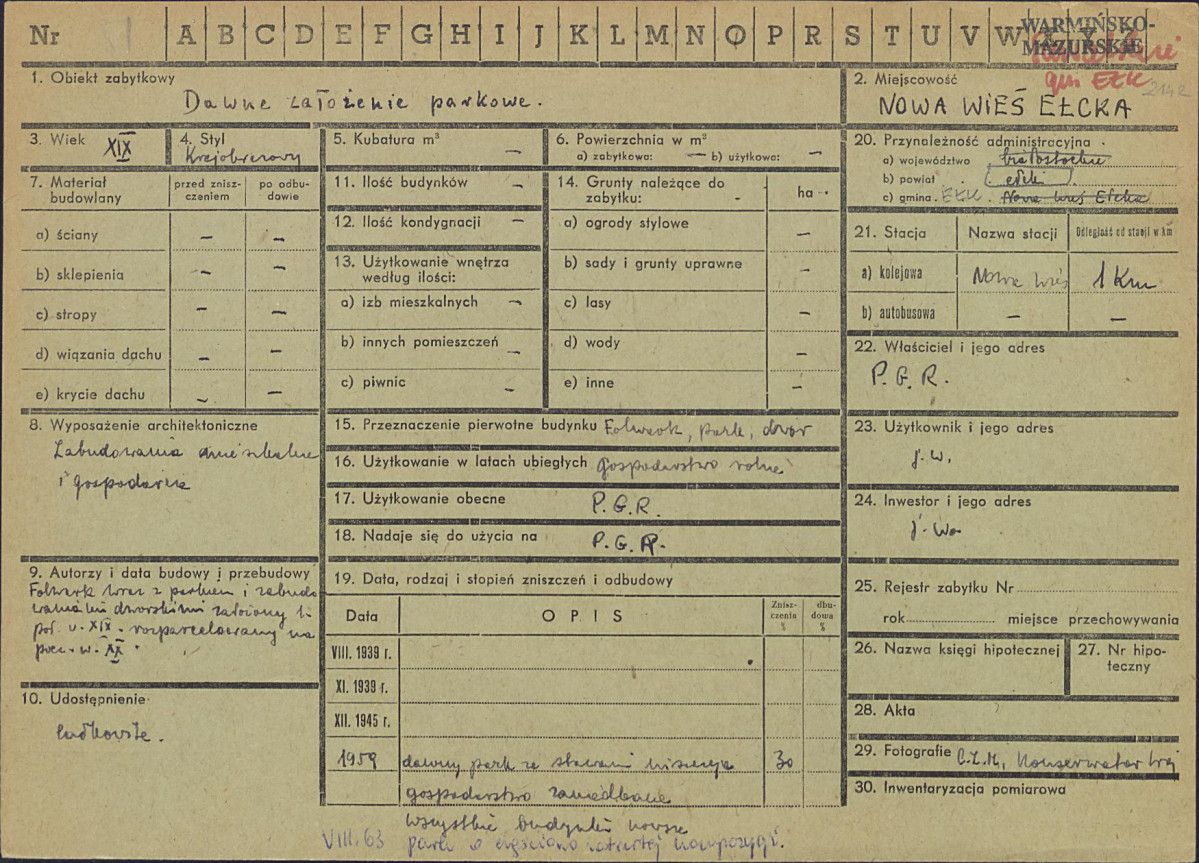 Nr A B C D E F G H I J K L M N O P R S T U V W
WARMIŃSKO-
MAZURSKIE
gm EŁK
2142
1. Obiekt zabytkowy
Dawne założenie parkowe.
2. Miejscowość
NOWA WIEŚ EŁCKA
3. Wiek XIX
4. Styl
Krajobrazowy
5. Kubatura m³ —
6. Powierzchnia w m²
a) zabytkowa: — b) użytkowa: —
20. Przynależność administracyjna
a) województwo białostockie
b) powiat ełcki
c) gmina EŁK. Nowa Wieś Ełcka
7. Materiał budowlany
przed zniszczeniem
po odbudowie
a) ściany — —
b) sklepienia — —
c) stropy — —
d) wiązania dachu — —
e) krycie dachu — —
11. Ilość budynków —
12. Ilość kondygnacji —
13. Użytkowanie wnętrza
według ilości:
a) izb mieszkalnych —
b) innych pomieszczeń —
c) piwnic —
14. Grunty należące do
zabytku: - ha -
a) ogrody stylowe —
b) sady i grunty uprawne —
c) lasy —
d) wody —
e) inne —
21. Stacja
Nazwa stacji
Odległość od stacji w km
a) kolejowa Nowa Wieś 1 Km
b) autobusowa — —
22. Właściciel i jego adres
P.G.R.
8. Wyposażenie architektoniczne
Zabudowania mieszkalne
i gospodarcze
15. Przeznaczenie pierwotne budynku Folwark, park, dwór
16. Użytkowanie w latach ubiegłych gospodarstwo rolne
17. Użytkowanie obecne P.G.R.
18. Nadaje się do użycia na P.G.R.
23. Użytkownik i jego adres
j.w.
24. Inwestor i jego adres
j.w.
9. Autorzy i data budowy i przebudowy
Folwark wraz z parkiem i zabudo
waniami dworskimi założony
poł. w. XIX. rozparcelowany na
pocz. w. XX.
10. Udostępnienie
całkowite.
19. Data, rodzaj i stopień zniszczeń i odbudowy
Data
OPIS
Zniszczenia %
dbudowa %
VIII. 1939 r.
XI. 1939 r.
XII. 1945 r.
1959 dawny park ze stawami 30
gospodarstwo zaniedbane
wszystkie budynki nowsze
VIII.63 park o częściowo zatartej kompozycji.
25. Rejestr zabytku Nr
rok miejsce przechowywania
26. Nazwa księgi hipotecznej
27. Nr hipoteczny
28. Akta
29. Fotografie Konserwator Woj
30. Inwentaryzacja pomiarowa